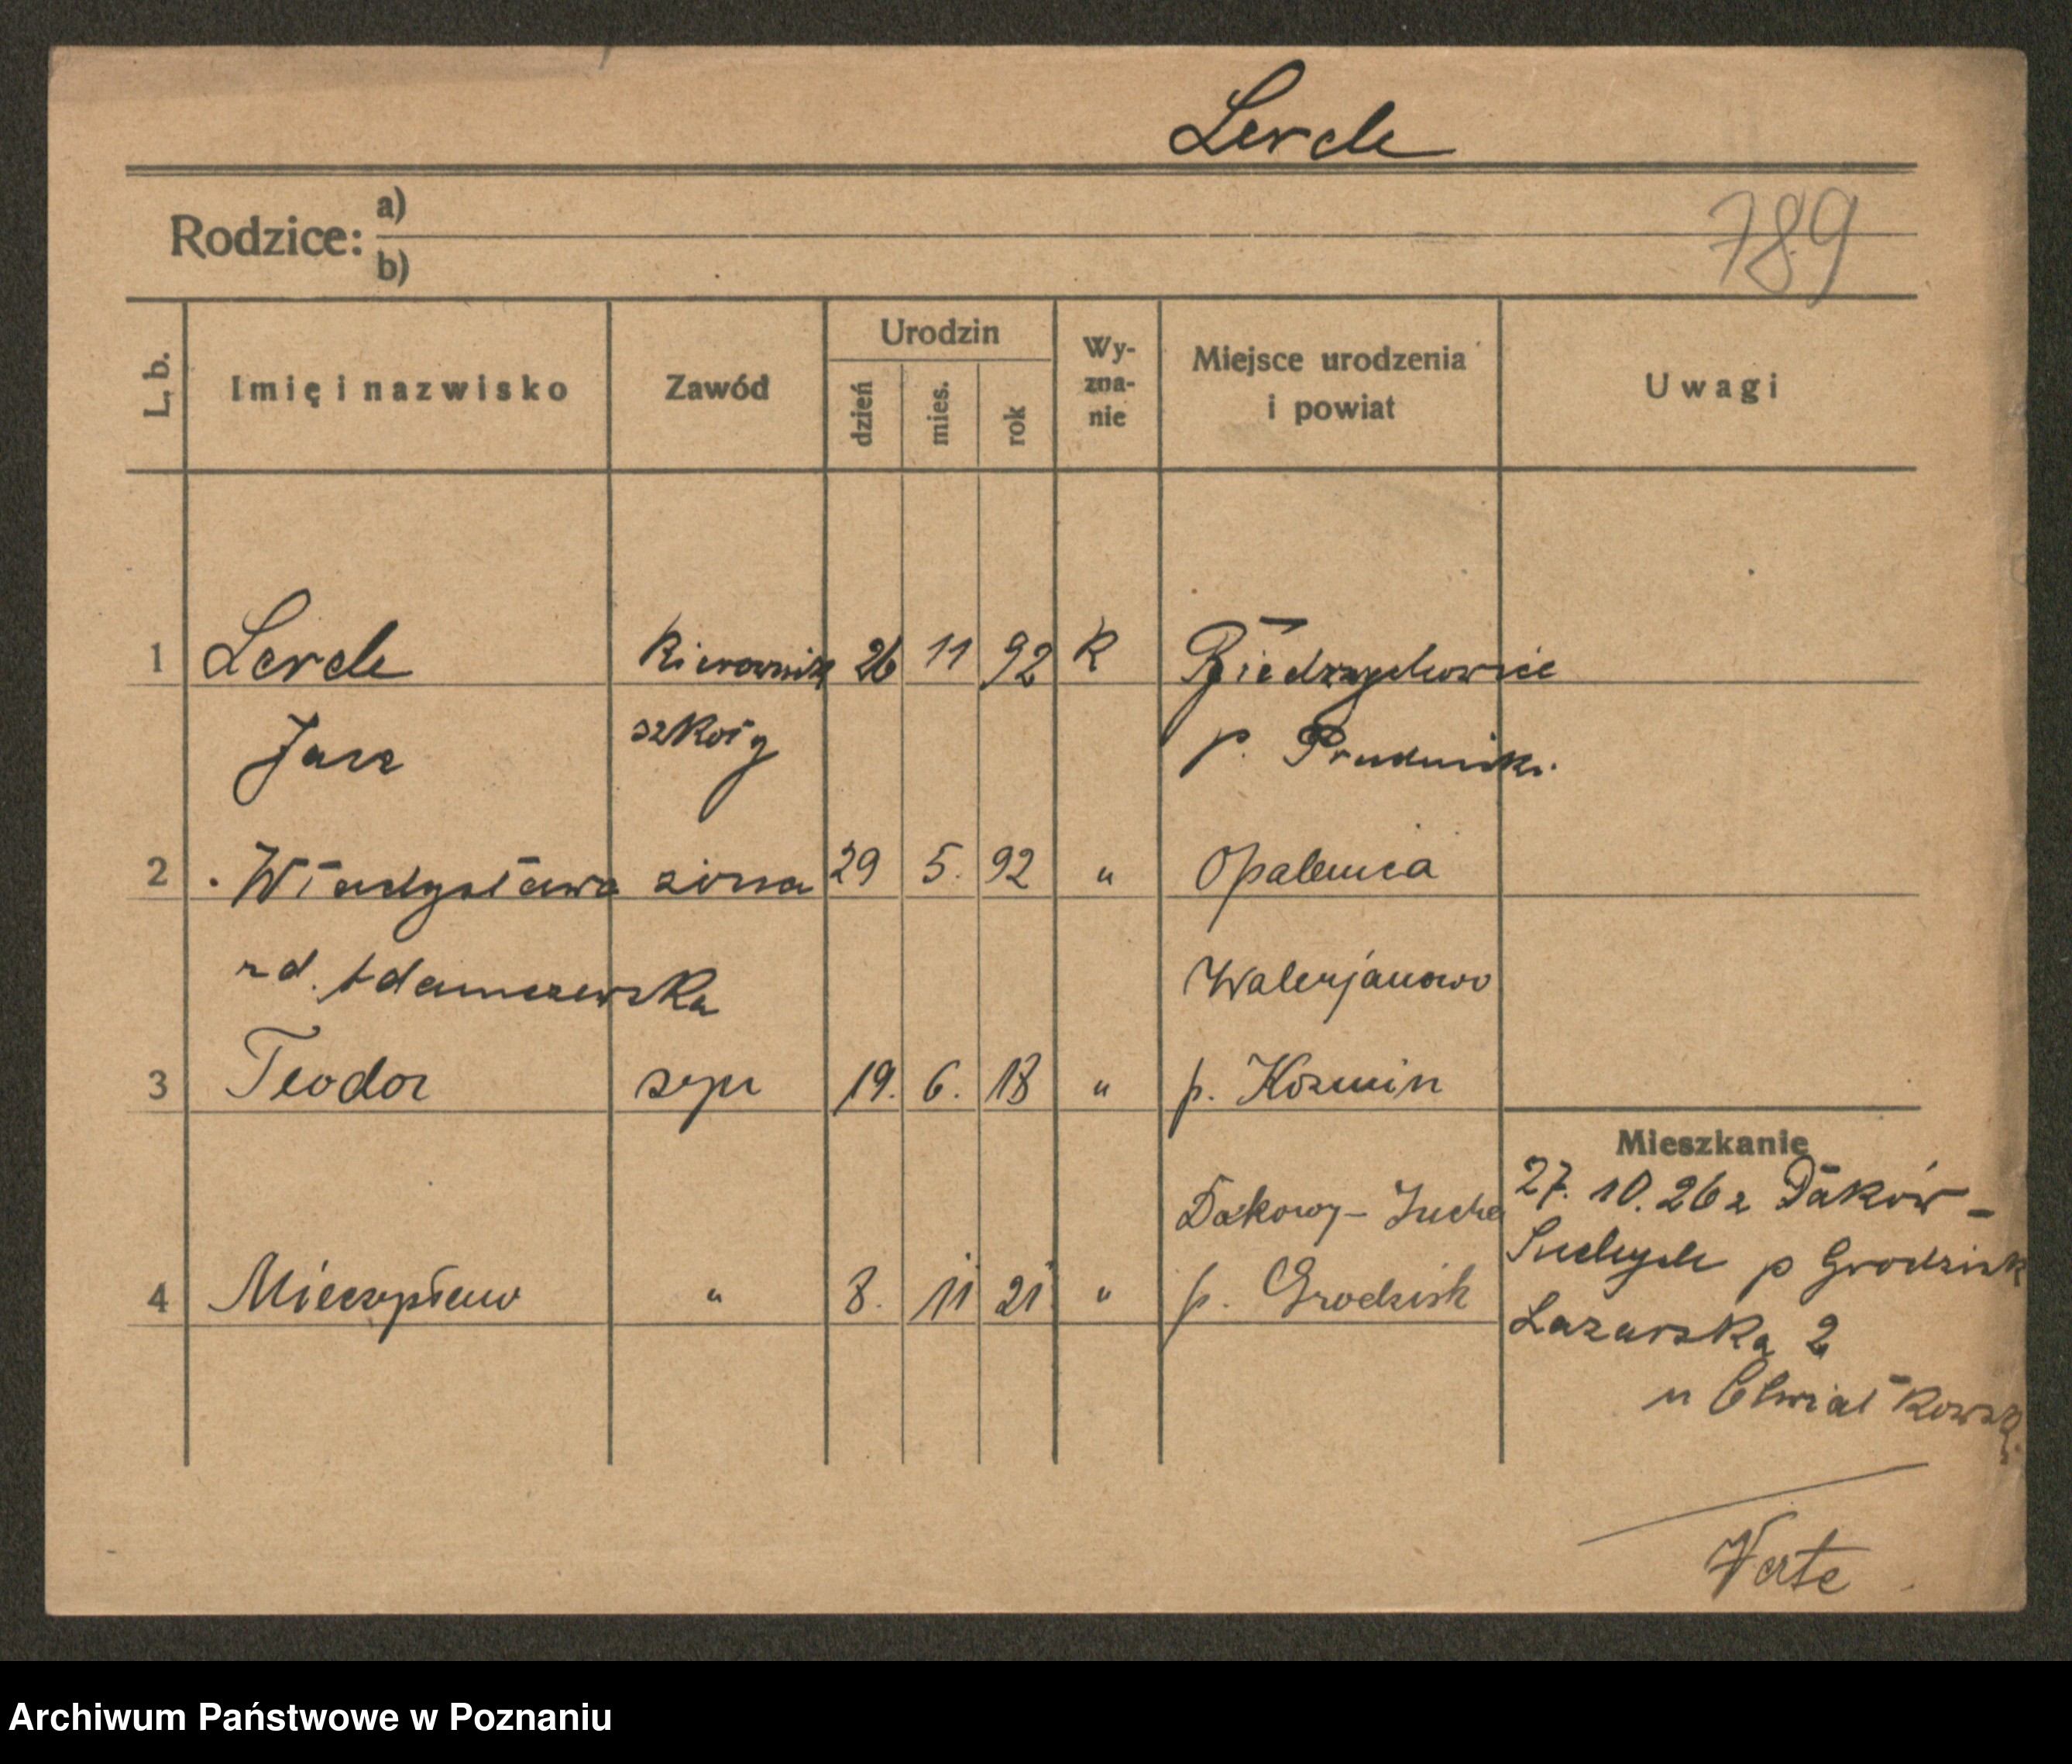 Lerch
Rodzice: a)
b)
789
L. b.
Imię i nazwisko
Zawód
Urodzin
dzień
mies.
rok
Wy-
zna-
nie
Miejsce urodzenia
i powiat
Uwagi
1 Lerch Kierownik 26 11 92 R Biedrzychowice
Jan szkoły p. Prudnicki.
2 Władysława żona 29 5. 92 " Opalenica
rd. Adamczewska Walerjanowo
3 Teodor syn 19. 6. 18 " p. Kozmin
Mieszkanie
Dakowy-Suche 27. 10. 26 z Daków-
Suchych p Grodzisk
4 Mieczysław " 8. 11 21 " p. Grodzisk
Lazarska 2
u Chwiałkowsk.
Verte
Archiwum Państwowe w Poznaniu